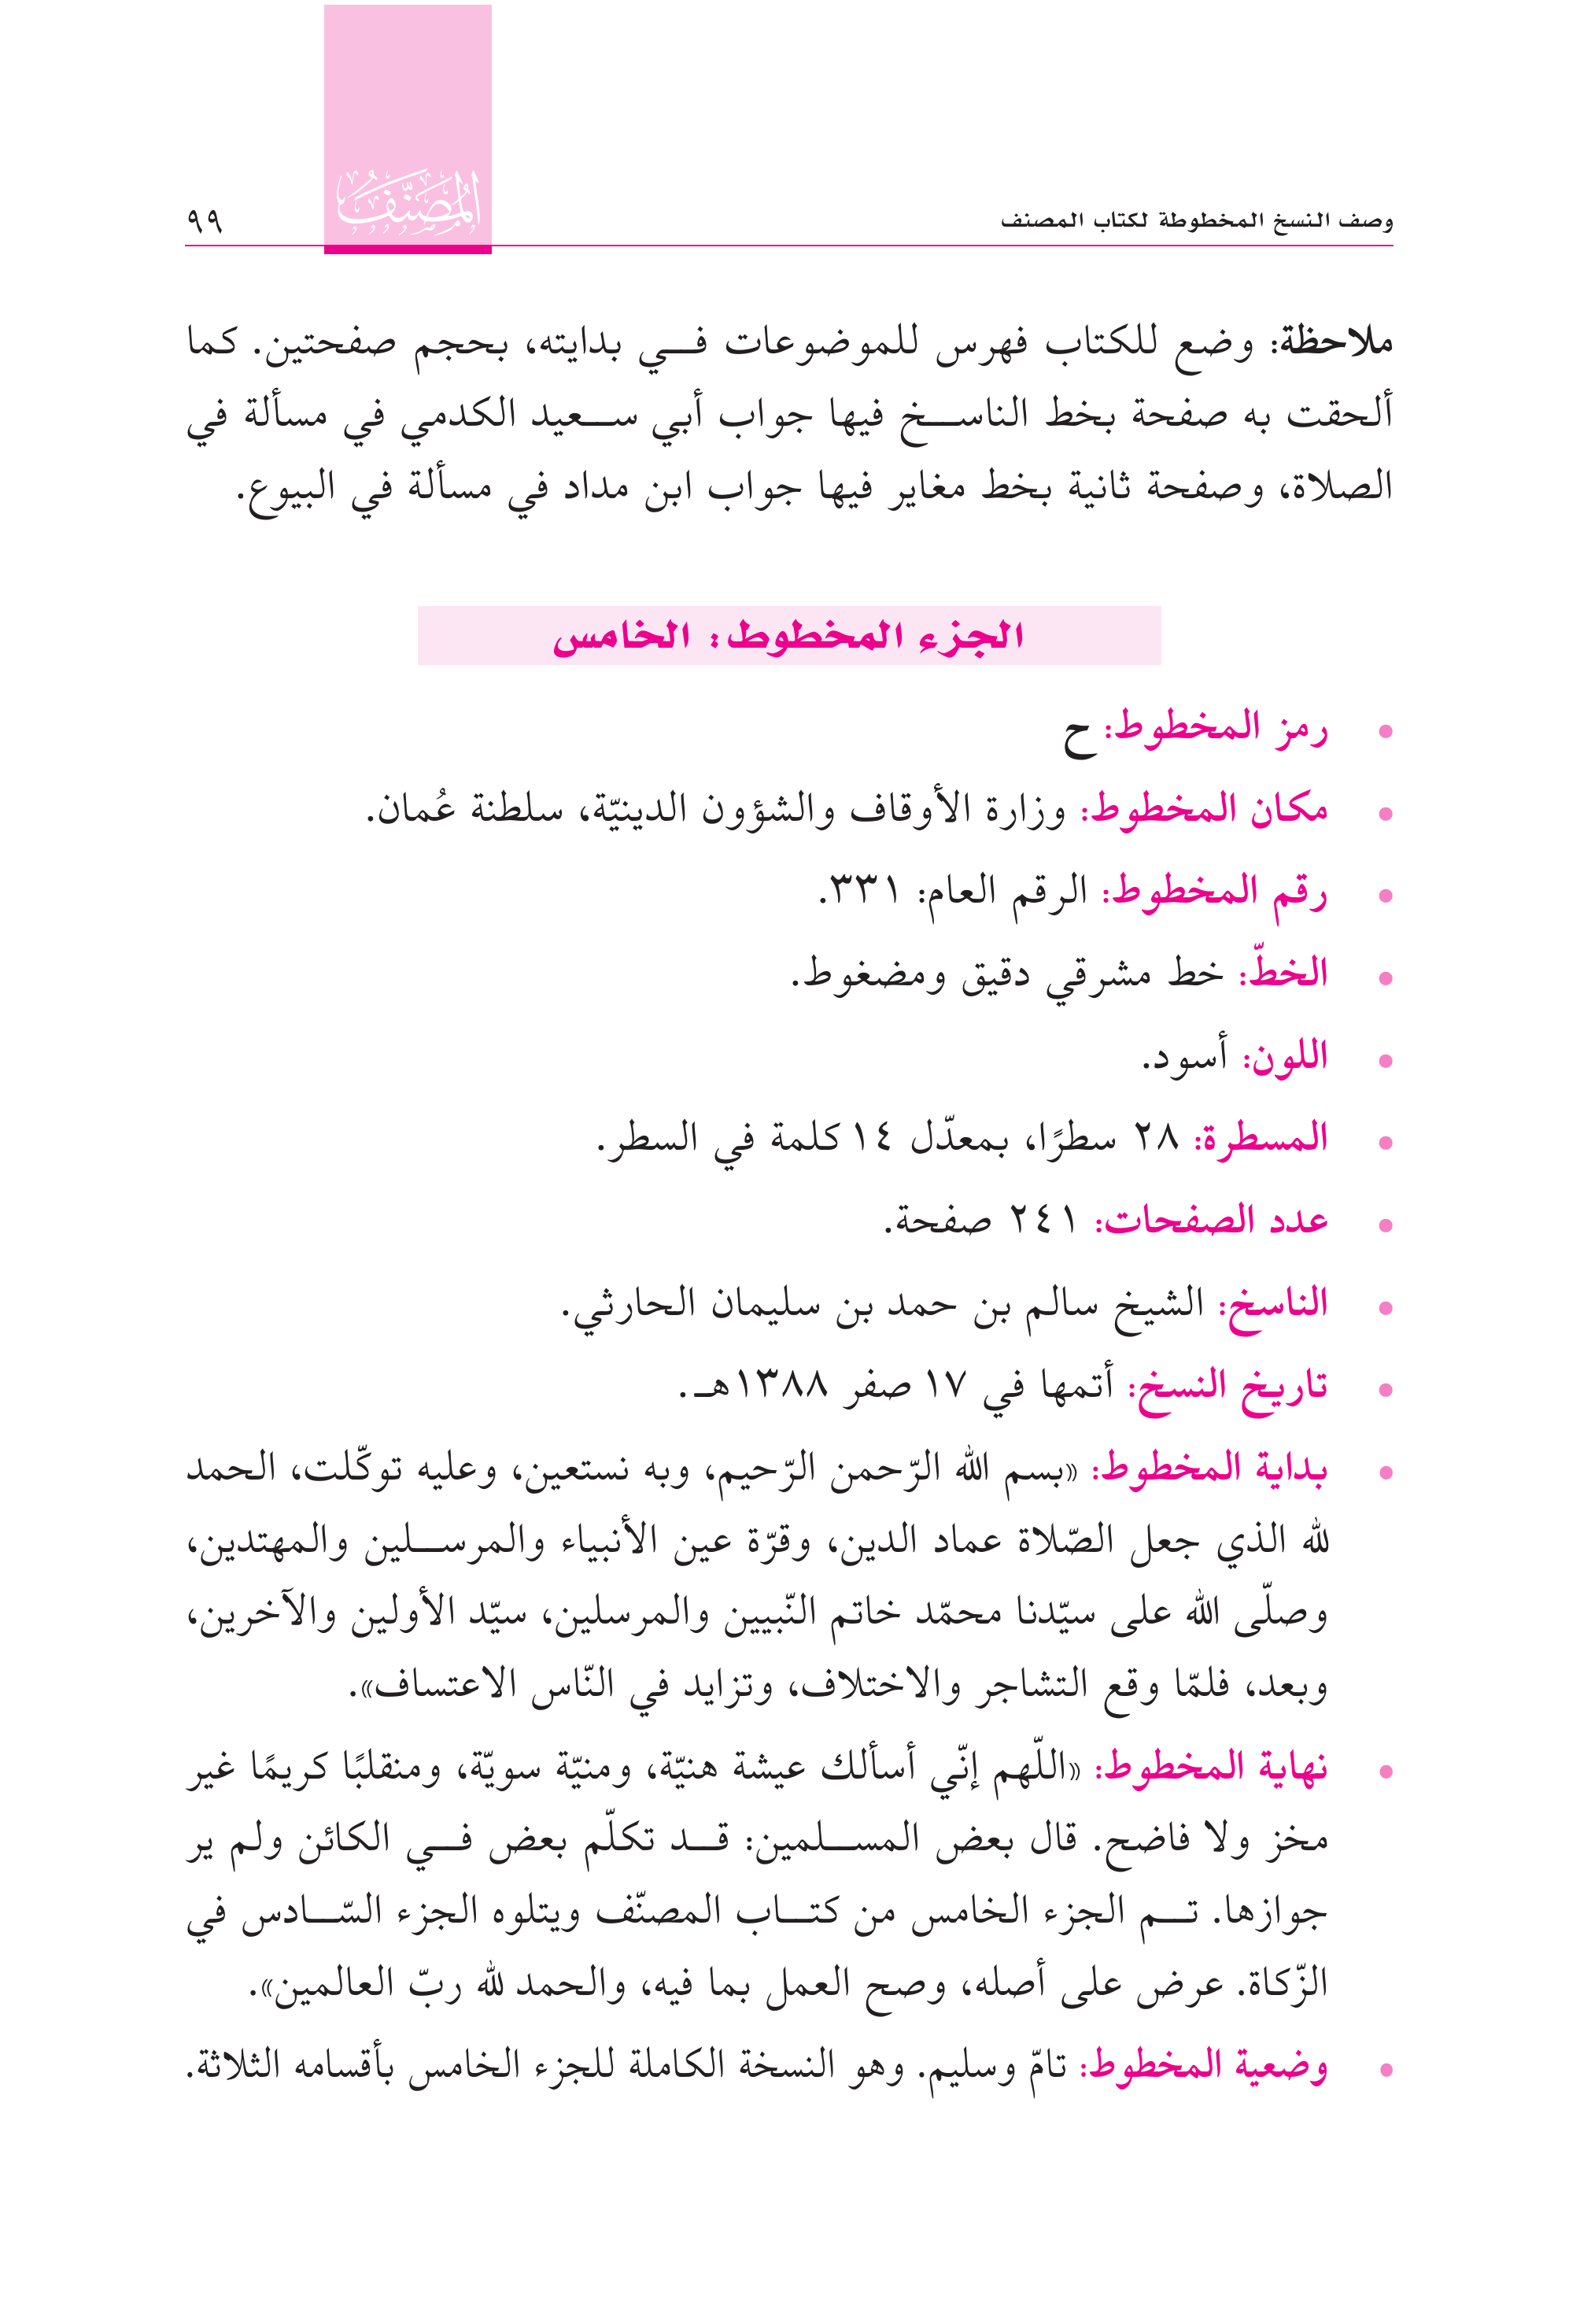 وصف النسخ المخطوطة لكتاب المصنف
المُصَنَّف
٩٩
ملاحظة: وضع للكتاب فهرس للموضوعات فـــي بدايته، بحجم صفحتين. كما
ألحقت به صفحة بخط الناســـخ فيها جواب أبي ســـعيد الكدمي في مسألة في
الصلاة، وصفحة ثانية بخط مغاير فيها جواب ابن مداد في مسألة في البيوع.
الجزء المخطوط: الخامس
• رمز المخطوط: ح
• مكان المخطوط: وزارة الأوقاف والشؤون الدينيّة، سلطنة عُمان.
• رقم المخطوط: الرقم العام: ٣٣١.
• الخطّ: خط مشرقي دقيق ومضغوط.
• اللون: أسود.
• المسطرة: ٢٨ سطرًا، بمعدّل ١٤ كلمة في السطر.
• عدد الصفحات: ٢٤١ صفحة.
• الناسخ: الشيخ سالم بن حمد بن سليمان الحارثي.
• تاريخ النسخ: أتمها في ١٧ صفر ١٣٨٨هـ.
• بداية المخطوط: «بسم الله الرّحمن الرّحيم، وبه نستعين، وعليه توكّلت، الحمد
لله الذي جعل الصّلاة عماد الدين، وقرّة عين الأنبياء والمرســـلين والمهتدين،
وصلّى الله على سيّدنا محمّد خاتم النّبيين والمرسلين، سيّد الأولين والآخرين،
وبعد، فلمّا وقع التشاجر والاختلاف، وتزايد في النّاس الاعتساف».
• نهاية المخطوط: «اللّهم إنّي أسألك عيشة هنيّة، ومنيّة سويّة، ومنقلبًا كريمًا غير
مخز ولا فاضح. قال بعض المســـلمين: قـــد تكلّم بعض فـــي الكائن ولم ير
جوازها. تـــم الجزء الخامس من كتـــاب المصنّف ويتلوه الجزء السّـــادس في
الزّكاة. عرض على أصله، وصح العمل بما فيه، والحمد لله ربّ العالمين».
• وضعية المخطوط: تامّ وسليم. وهو النسخة الكاملة للجزء الخامس بأقسامه الثلاثة.